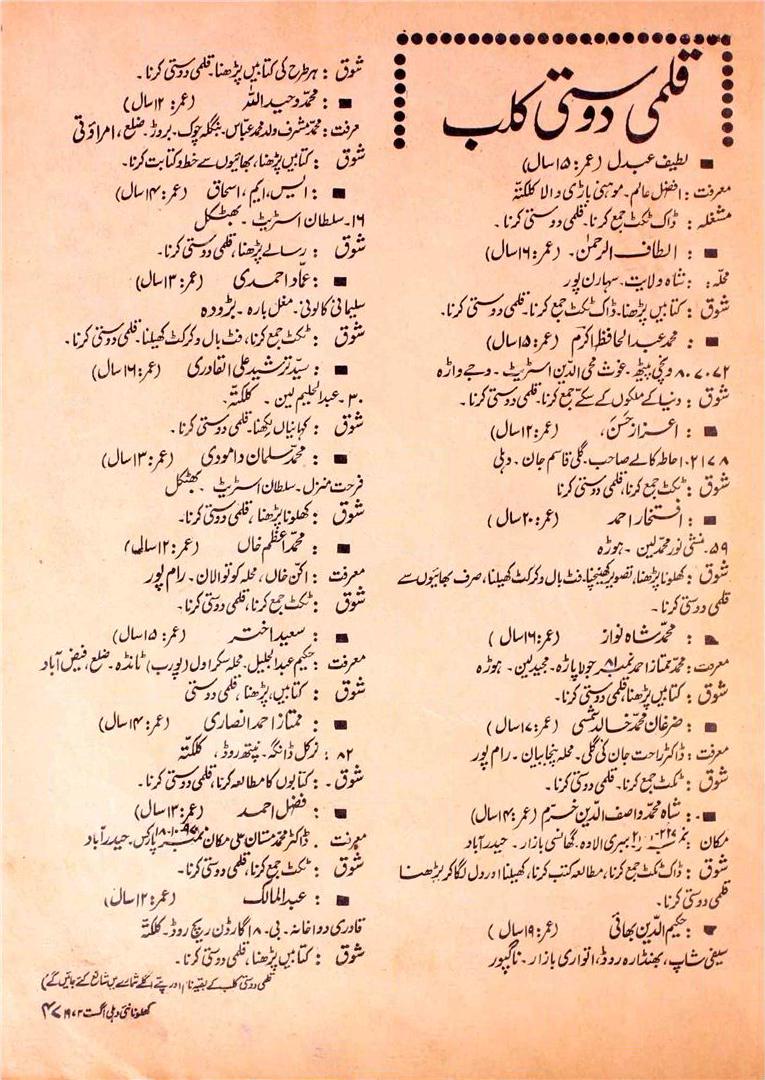 قلمی دوستی کلب
■ : لطیف عبدل (عمر: ۱۵ سال)
معرفت : افضل عالم۔ موہنی باڑی والا کلکتہ
مشغلہ : ڈاک ٹکٹ جمع کرنا۔ قلمی دوستی کرنا۔
■ : الطاف الرحمٰن۔ (عمر: ۱۶ سال)
محلہ : شاہ ولایت۔ سہارن پور
شوق : کتابیں پڑھنا۔ ڈاک ٹکٹ جمع کرنا۔ قلمی دوستی کرنا۔
■ : محمد عبدالحافظ اکرم (عمر: ۱۵ سال)
۸۰.۷.۷۲ ونچی پیٹھ۔ غوث محی الدین اسٹریٹ۔ وجے واڑہ
شوق : دنیا کے ملکوں کے سکّے جمع کرنا۔ قلمی دوستی کرنا۔
■ : اعزاز حَسَن، (عمر: ۱۲ سال)
۱۰۲۱۷۸ احاطہ کالے صاحب۔ گلی قاسم جان۔ دہلی
شوق : ٹکٹ جمع کرنا، قلمی دوستی کرنا
■ : افتخار احمد (عمر: ۲۰ سال)
۵۹۔ منشی نور محمد لین ۔ ہوڑہ
شوق : کھلونا پڑھنا، تصویر کھینچنا۔ فٹ بال و کرکٹ کھیلنا، صرف بھائیوں سے
قلمی دوستی کرنا۔
■ : محمد شاہ نواز (عمر: ۱۶ سال)
معرفت : محمد ممتاز احمد نمبر ۸۱ جولا پاڑہ۔ مجید لین۔ ہوڑہ
شوق : کتابیں پڑھنا، قلمی دوستی کرنا۔
■ : ضرغان محمد خالد شمسی (عمر: ۱۷ سال)
معرفت : ڈاکٹر راحت جان کی گلی۔ محلہ پنجابیان۔ رام پور
شوق : ٹکٹ جمع کرنا۔ قلمی دوستی کرنا۔
■ : شاہ محمد واصف الدین خرّم (عمر: ۱۴ سال)
مکان : ببری الاوہ۔ گھانسی بازار۔ حیدرآباد
شوق : ڈاک ٹکٹ جمع کرنا، مطالعہ کتب کرنا، کھیلنا اور دل لگا کر پڑھنا
قلمی دوستی کرنا۔
■ : حکیم الدین بھائی (عمر: ۱۹ سال)
سیفی شاپ، بھنڈارہ روڈ، اتواری بازار۔ ناگپور
شوق : ہر طرح کی کتابیں پڑھنا۔ قلمی دوستی کرنا۔
■ : محمد وحید اللہ (عمر: ۱۲ سال)
معرفت : محمد مشرف ولد محمد عباس۔ بنگلہ چوک۔ بروڑ۔ ضلع، امراؤتی
شوق : کتابیں پڑھنا، بھائیوں سے خط و کتابت کرنا۔
■ : ایس، ایم، اسحاق (عمر: ۱۴ سال)
۱۶۔ سلطان اسٹریٹ ۔ بھٹکل
شوق : رسالے پڑھنا، قلمی دوستی کرنا۔
■ : عمّاد احمدی (عمر: ۱۳ سال)
سلیمانی کالونی۔ مغل بارہ۔ بڑودہ
شوق : ٹکٹ جمع کرنا، فٹ بال و کرکٹ کھیلنا۔ قلمی دوستی کرنا۔
■ : سیّد ترشید علی القادری (عمر: ۱۶ سال)
۳۰۔ عبدالحلیم لین ۔ کلکتہ۔
شوق : کہانیاں لکھنا۔ قلمی دوستی کرنا۔
■ : محمد سلمان دامودی (عمر: ۱۳ سال)
فرحت منزل۔ سلطان اسٹریٹ ۔ بھٹکل
شوق : کھلونا پڑھنا، قلمی دوستی کرنا۔
■ : محمد اعظم خاں (عمر: ۱۲ سال)
معرفت : اکّن خاں، محلہ کوتوالان۔ رام پور
شوق : ٹکٹ جمع کرنا، قلمی دوستی کرنا۔
■ : سعید اختر (عمر: ۱۵ سال)
معرفت : حکیم عبدالجلیل۔ محلہ سکراول (پورب) ٹانڈہ۔ ضلع، فیض آباد
شوق : کتابیں، پڑھنا، قلمی دوستی
■ : ممتاز احمد انصاری (عمر: ۱۴ سال)
۸۲ : نرکل ڈانگہ۔ نپتھ روڈ، کلکتہ
شوق : کتابوں کا مطالعہ کرنا، قلمی دوستی کرنا۔
■ : فضل احمد (عمر: ۱۳ سال)
معرفت : ڈاکٹر محمد مستان علی مکان نمبر بارکس۔ حیدرآباد
شوق : ٹکٹ جمع کرنا، قلمی دوستی کرنا۔
■ : عبدالمالک (عمر: ۱۲ سال)
قادری دواخانہ۔ بی۔ ۱۸ گارڈن ریچ روڈ۔ کلکتہ
شوق : کتابیں پڑھنا، قلمی دوستی کرنا۔
(قلمی دوستی کلب کے بقیہ نام اور پتے اگلے شمارے میں شائع کئے جائیں گے)
کھلونا نئی دہلی اگست ۱۹۷۲ ۴۷